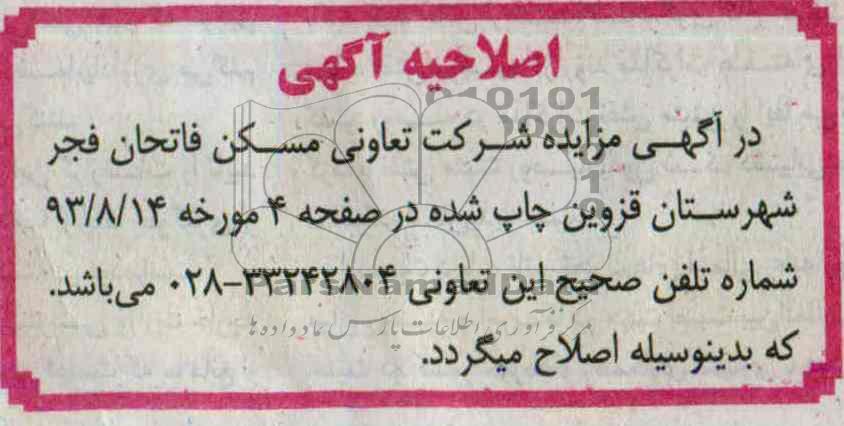 اصلاحیه آگهی
در آگهی مزایده شرکت تعاونی مسکن فاتحان فجر
شهرستان قزوین چاپ شده در صفحه ۴ مورخه ۹۳/۸/۱۴
شماره تلفن صحیح این تعاونی ۳۳۲۴۲۸۰۴-۰۲۸ می‌باشد.
که بدینوسیله اصلاح میگردد.
ParsNamadData
مرکز فرآوری اطلاعات پارس نماد داده ها